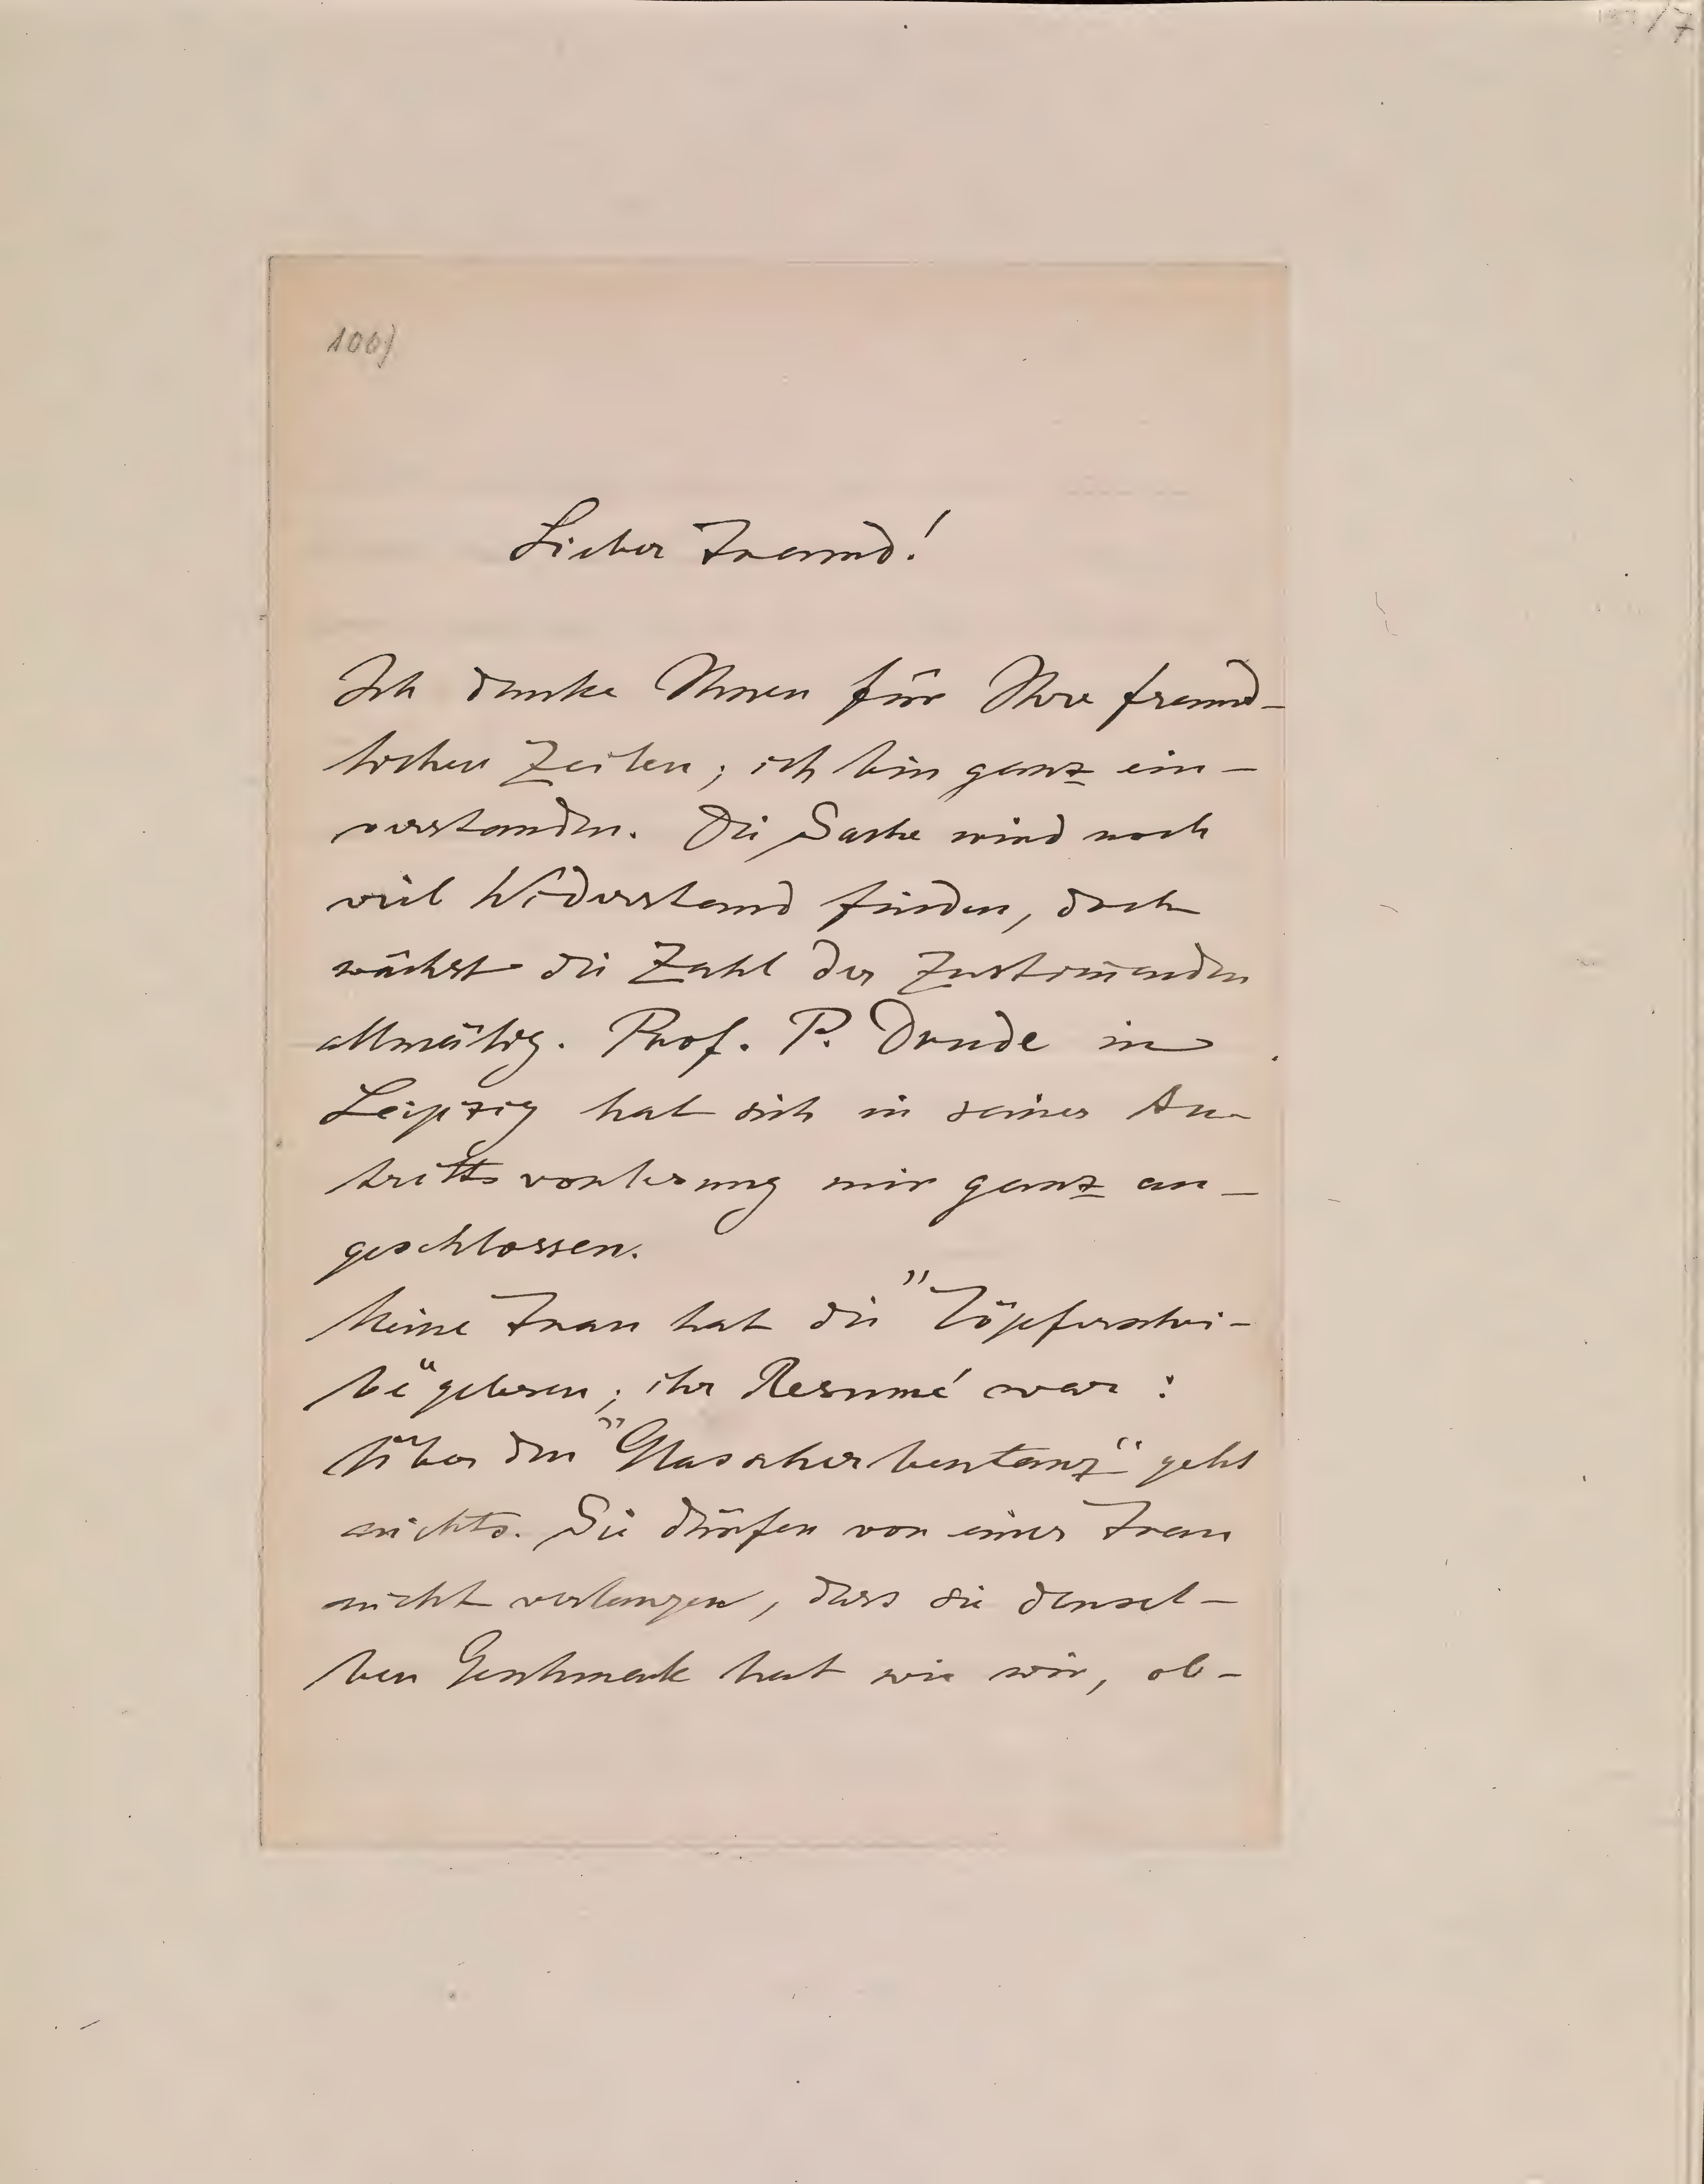 100)
Lieber Freund!
Ich danke Ihnen für Ihre freund-
lichen Zeilen; ich bin ganz ein-
verstanden. Die Sache wird noch
viel Widerstand finden, doch
wächst die Zahl der Zustim̄enden
allmälig. Prof. P. Drude in
Leipzig hat sich in seiner An-
trittsvorlesung mir ganz an-
geschlossen.
Meine Frau hat die "Töpferschei-
be" gelesen; ihr Resumé war:
Über den "Glasscherbentanz" geht
nichts. Sie dürfen von einer Frau
nicht verlangen, dass sie densel-
ben Geschmack hat wie wir, ob-